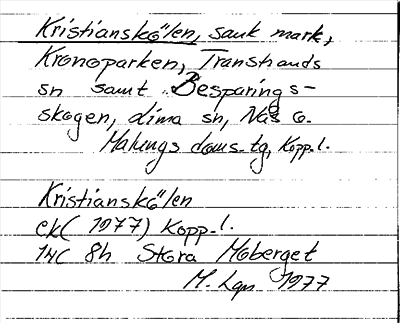 Kristianskölen, sank mark,
Kronoparken, Transtrands
sn samt Besparings-
skogen, Lima sn, Näs o.
Malungs doms.tg, Kopp.l.
Kristianskölen
ek( 1977) Kopp.l.
14C 8h Stora Moberget
M. Lgn 1977